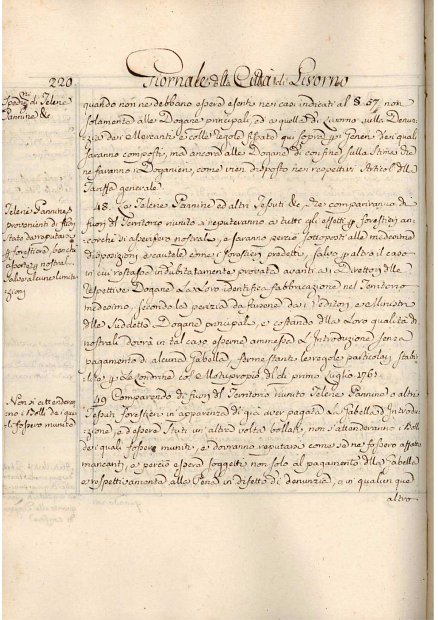 220 Giornale della Città di Livorno
Spediz.ni di Telerie
Pannine &c
quando non ne debbano essere esenti nei casi indicati al §. 57, non
solamente alle Dogane principali, ed a quella di Livorno sulla Denun-
zia dei Mercanti, e colle regole fissate qui sopra p i Generi dei quali
saranno composti, ma ancora alle Dogane di confine sulla Stima che
ne faranno i Doganieri, come vien disposto nei respettivi Articoli della
Tariffa generale.
Telerie Pannine &
provenienti di fuori
Stato da reputarsi
p forestiere, benchè
asporte p nostrali
salvo alcune limita-
zioni
48. Le Telerie Pannine ed altri Tessuti &c, che compariranno di
fuori del Territorio riunito si reputeranno a tutti gli effetti p forestieri an-
corchè vi asserissero nostrali, e saranno perciò sottoposti alle medesime
disposizioni, e cautele come i forestieri predetti, salvo p altro il caso
in cui restasse indubitatamente provata avanti ai Direttori delle
respettive Dogane La Loro identifica fabbricazione nel Territorio
medesimo, secondo la perizia da farsene dai Periti, e Ministri
delle Suddette Dogane principali, e costando della Loro qualità di
nostrali dovrà in tal caso esserne ammessa L'Introduzione senza
pagamento di alcuna Gabella, ferme stanti le regole particolari stabi-
lite p col Motuproprio del dì primo Luglio 1761.
Non si attenderan-
no i Bolli dai quali
fossero muniti
49. Comparendo di fuori del Territorio riunito Telerie Pannine e altri
Tessuti Forestieri in apparenza di già aver pagata La Gabella d'Intro-
duzione, ed essere Stati un'altra volta bollati, non s'attenderanno i Bolli
dei quali fossero muniti, e dovranno reputarsi come se ne fossero affatto
mancanti, e perciò essere soggetti non solo al pagamento della Gabella
e rispettivamente alla Pena in difetto di denunzia, o in qualunque
altro